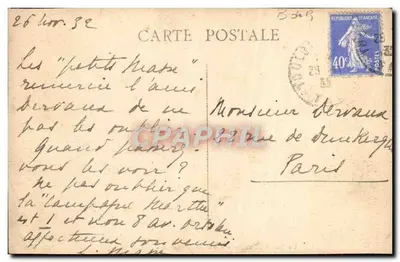 26 nov. 32
CARTE POSTALE
Les "petits Masse"
remercie l'ami
Dervaux de ne
pas les oublier
quand passez-
vous les voir ?
ne pas oublier que
la "Campagne Marthe"
est 1 et non 8 av.
affectueux souvenir
Monsieur Dervaux
rue de Dunkerque
Paris
REPUBLIQUE FRANÇAISE
40c
CPAPHIL